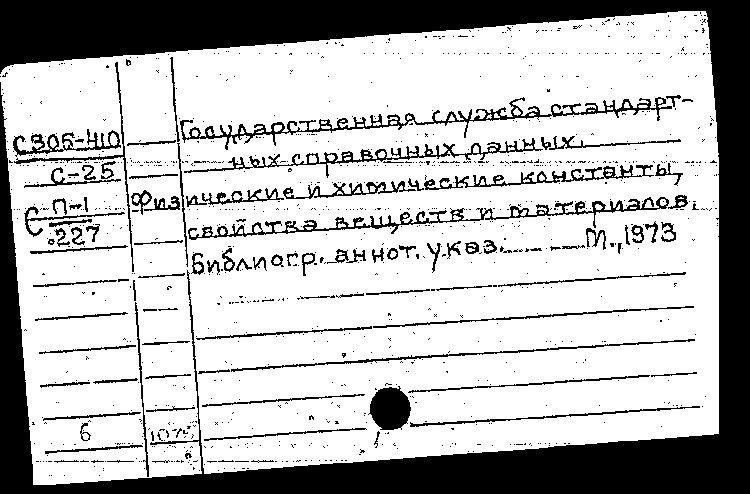 Государственная служба стандарт-
С305-410
ных справочных данных.
С-25
Физические и химические константы,
С П-1
.227
свойства веществ и материалов.
Библиогр. аннот. указ. М., 1973
6